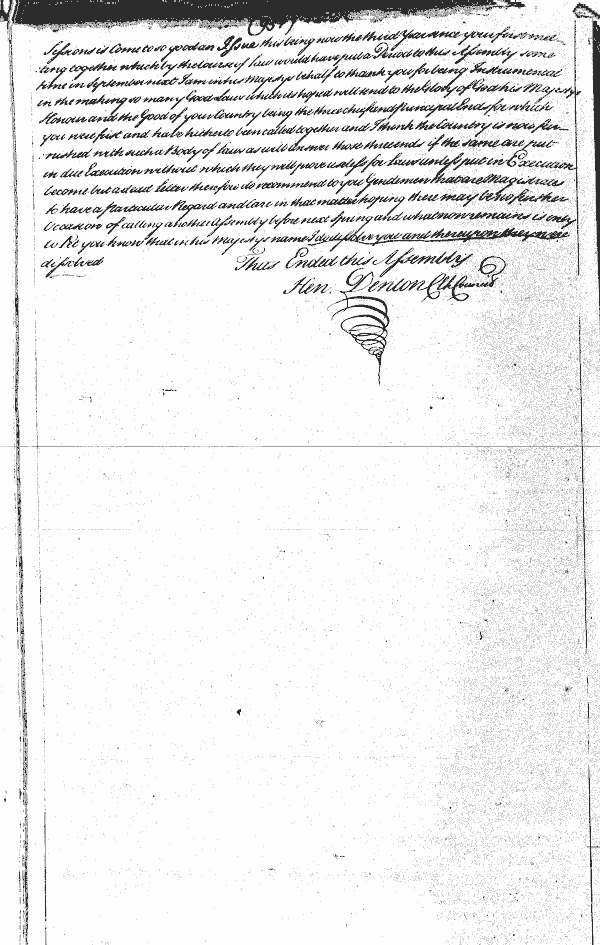 Sessions is Come to so good an Issue, this being now the third Year since your first mee-
ting together which by the Course of Law would have put a Period to this Assembly some
time in September next I am in his Majestys behalf to thank you for being Instrumental
in the making so many Good Laws which is hoped will tend to the Glory of God his Majestys
Honour and the Good of your Country being the three chief and principal Ends, for which
you were first and have hitherto been called together and I think the Country is now fur-
nished with such a Body of Laws as will answer those three ends if the same are put
in due Execution without which they will prove useless for Laws unless put in Execution
become but a dead Letter therefore do recommend to you Gentlemen that are Magistrates
to have a Particular Regard and Care in that matter hoping there may be no further
Occasion of calling another Assembly before next Spring and what now remains is only
to let you know that in his Majestys name I do dissolve you and thereupon they were
dissolved
Thus Ended this Assembly
Hen. Denton Cl. Council